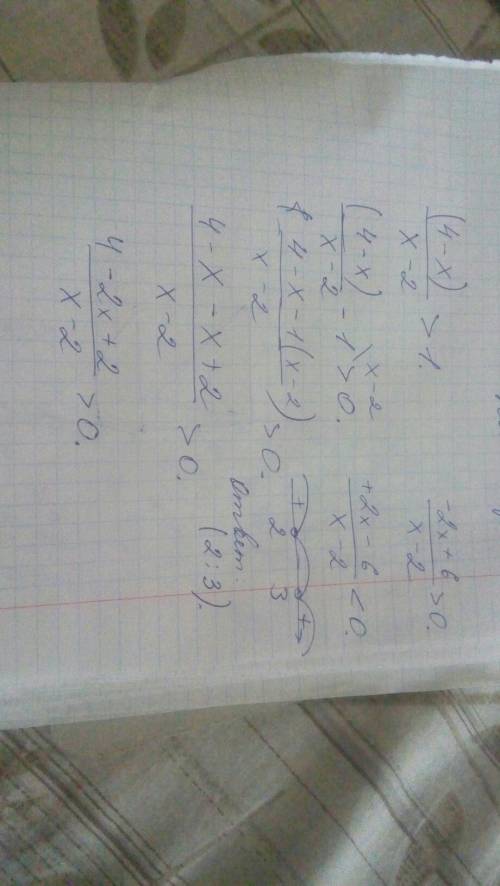 (4-x)/(x-2) > 1.
(4-x)/(x-2) - 1\x-2 > 0.
(4-x-1(x-2))/(x-2) > 0.
(4-x-x+2)/(x-2) > 0.
(4-2x+2)/(x-2) > 0.
(-2x+6)/(x-2) > 0.
(+2x-6)/(x-2) < 0.
+ 2 - 3 +
Ответ:
(2:3).